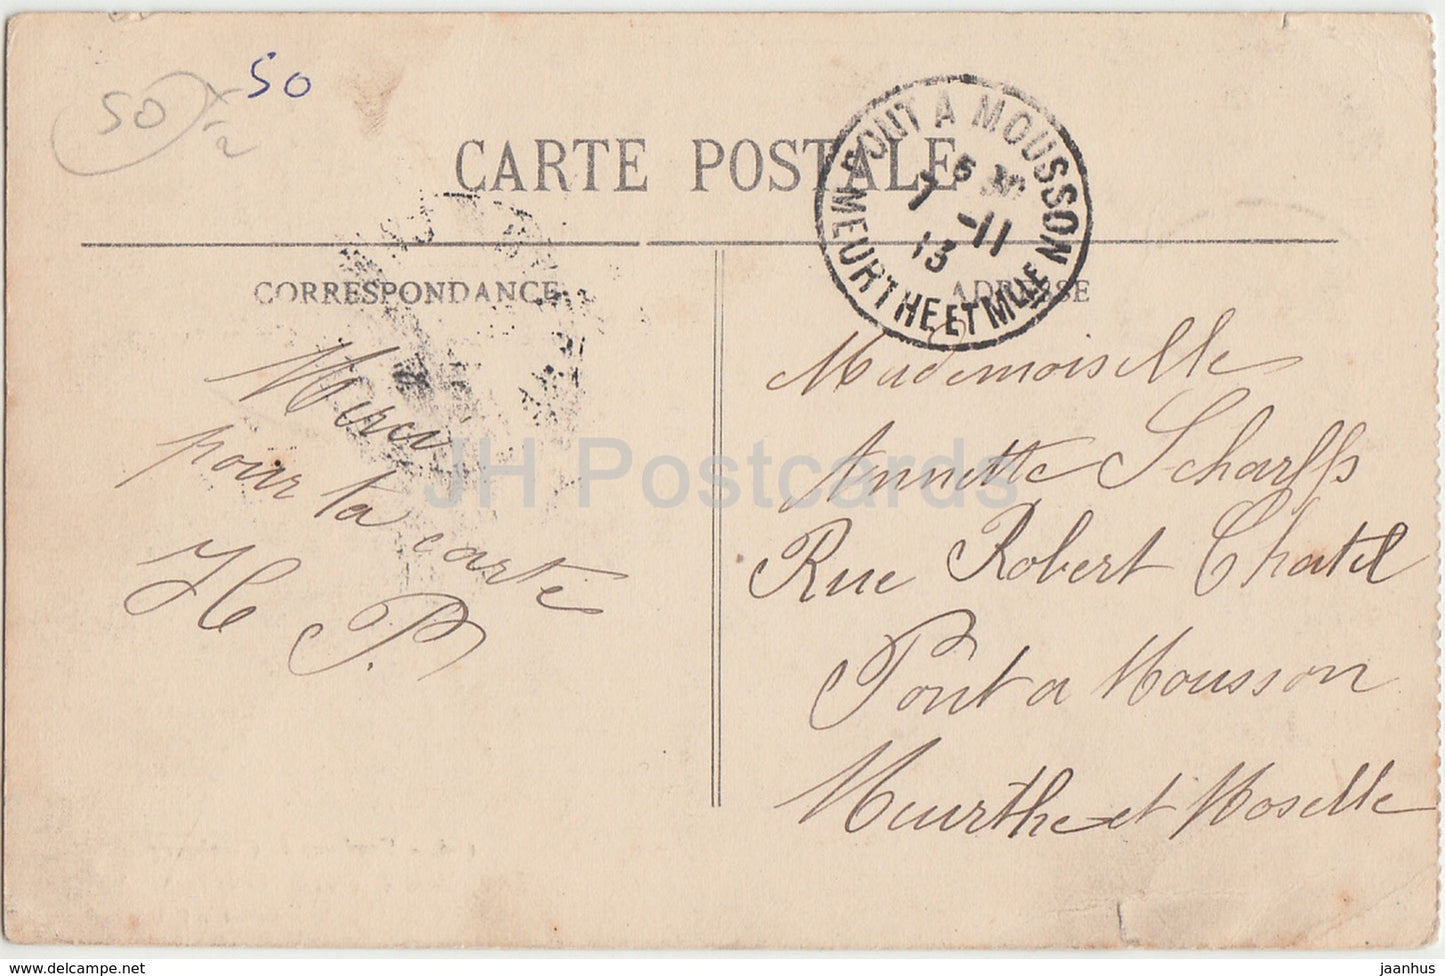 50
50
2
CARTE POSTALE
PONT A MOUSSON
7 -11
13
MEURTHE ET MLLE
CORRESPONDANCE
ADRESSE
Merci
pour la carte
H P.
Mademoiselle
Annette Scharffs
Rue Robert Chatel
Pont a Mousson
Meurthe et Moselle
JH Postcards
jaanhus - delcampe.net